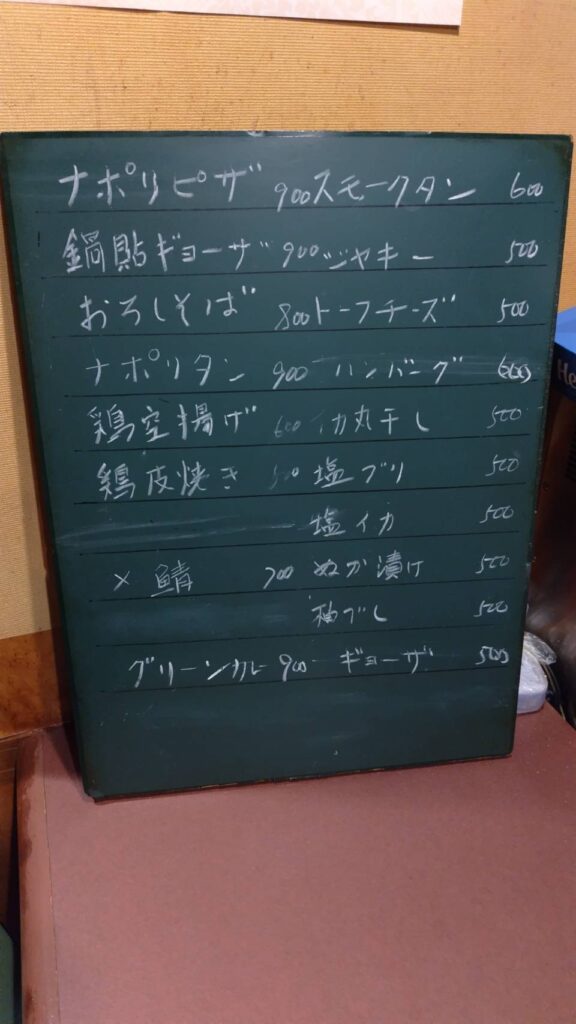 ナポリピザ 900 スモークタン 600
鍋貼ギョーザ 900 ジャキー 500
おろしそば 800 トーフチーズ 500
ナポリタン 900 ハンバーグ 600
鶏空揚げ 600 イカ丸干し 500
鶏皮焼き 500 塩ブリ 500
塩イカ 500
× 鯖 700 ぬか漬け 500
柚べし 500
グリーンカレー 900 ギョーザ 500
He